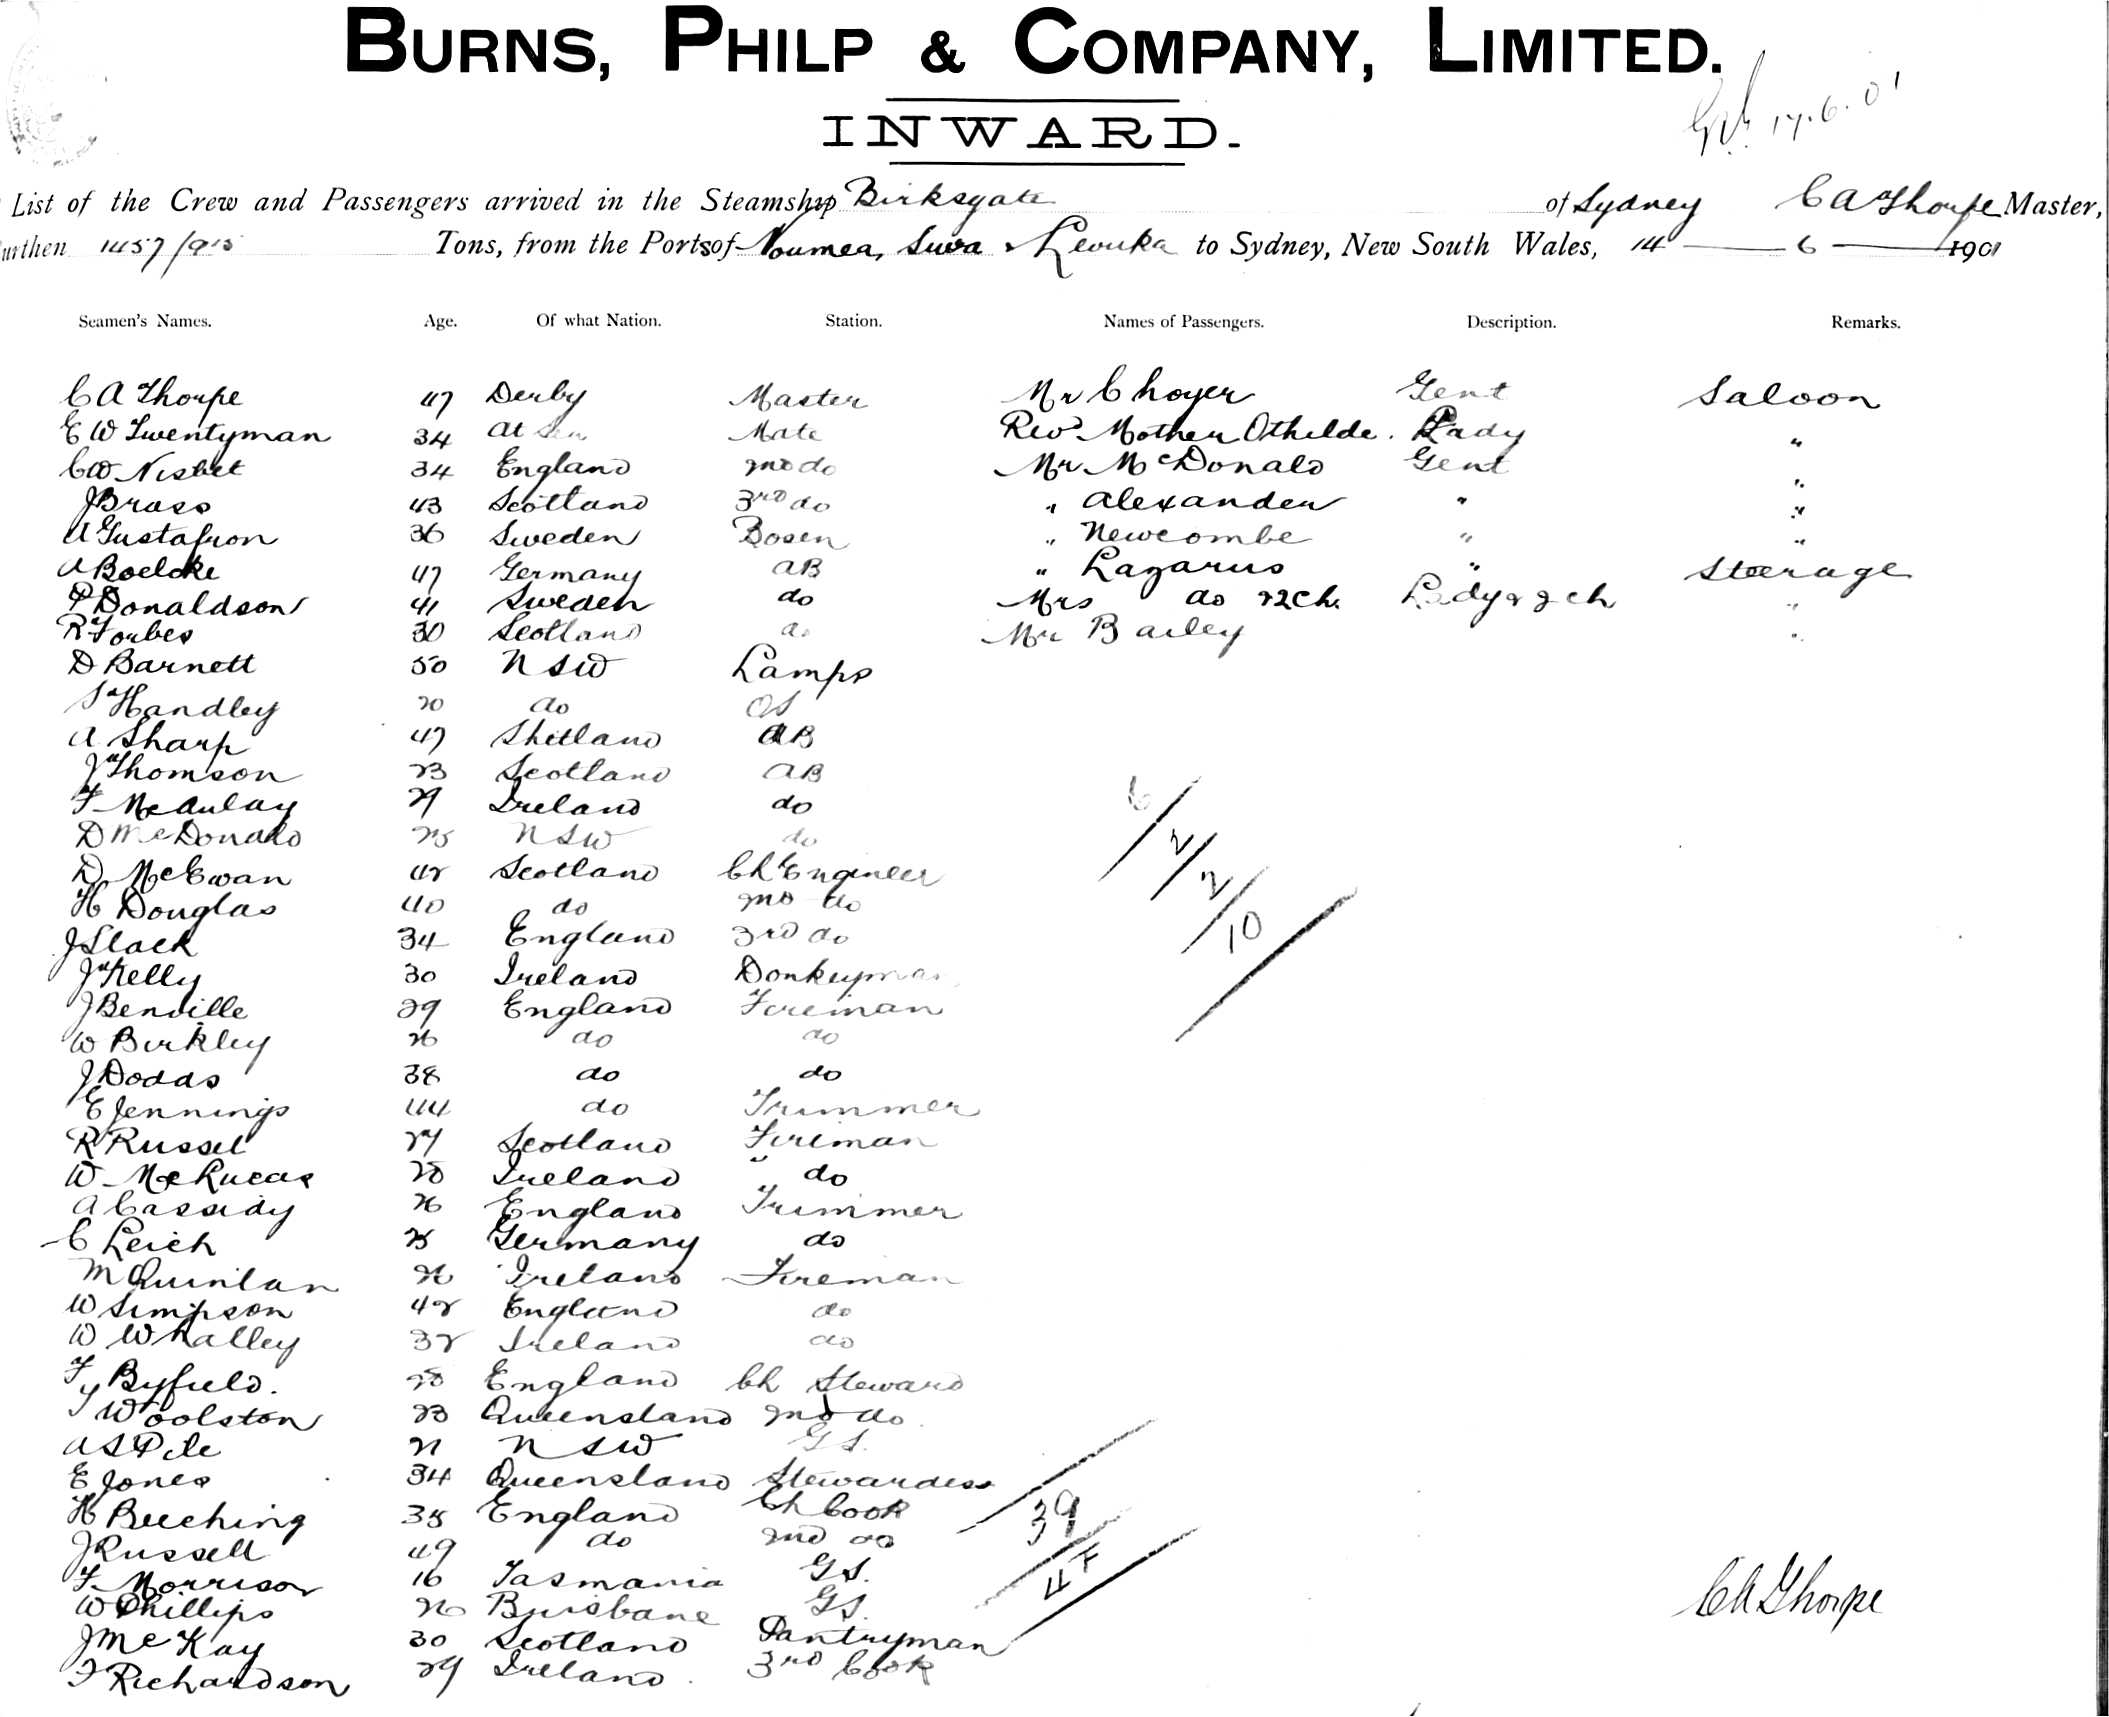 BURNS, PHILP & COMPANY, LIMITED.
INWARD.
17.6.01
List of the Crew and Passengers arrived in the Steamship Birksgate of Sydney C A Thorpe Master,
urthen 1457/915 Tons, from the Ports of Noumea, Suva & Levuka to Sydney, New South Wales, 14 — 6 — 1901
Seamen's Names. Age. Of what Nation. Station. Names of Passengers. Description. Remarks.
C A Thorpe 47 Derby Master Mr C hoyer Gent Saloon
E W Twentyman 34 At Sea Mate Revd Mother Othilde. Lady "
C W Nisbet 34 England 2nd do Mr McDonald Gent "
J Brass 43 Scotland 3rd do " Alexander " "
A Gustafson 36 Sweden Bosen " Newcombe " "
A Boelcke 47 Germany AB " Lazarus " Steerage
P Donaldson 41 Sweden do Mrs do & 2 Ch. Lady & 2 ch "
R Forbes 30 Scotland do Mr Bailey "
D Barnett 50 NSW Lamps
S Handley 20 do OS
A Sharp 47 Shetland AB
J Thomson 23 Scotland AB
F McAulay 29 Ireland do
D McDonald 25 NSW do
D McEwan 42 Scotland Ch Engineer
H Douglas 40 do 2nd do
J Slack 34 England 3rd do
J Kelly 30 Ireland Donkeyman
J Benville 29 England Fireman
W Birkley 26 do do
J Dodds 38 do do
E Jennings 44 do Trimmer
R Russel 27 Scotland Fireman
W McLucas 28 Ireland " do
A Cassidy 26 England Trimmer
C Leich 25 Germany do
M Quinlan 26 Ireland Fireman
W Simpson 42 England do
W Whalley 32 Ireland do
F Byfield. 28 England Ch Steward
T Woolston 23 Queensland 2nd do
A S Pile 21 NSW G S.
E Jones 34 Queensland Stewardess
H Beeching 38 England Ch Cook
J Russell 49 do 2nd do
F Morrison 16 Tasmania G S.
W Phillips 26 Brisbane G S.
J McKay 30 Scotland Pantryman
F Richardson 29 Ireland 3rd Cook
6/2/2/10
39
C A Thorpe